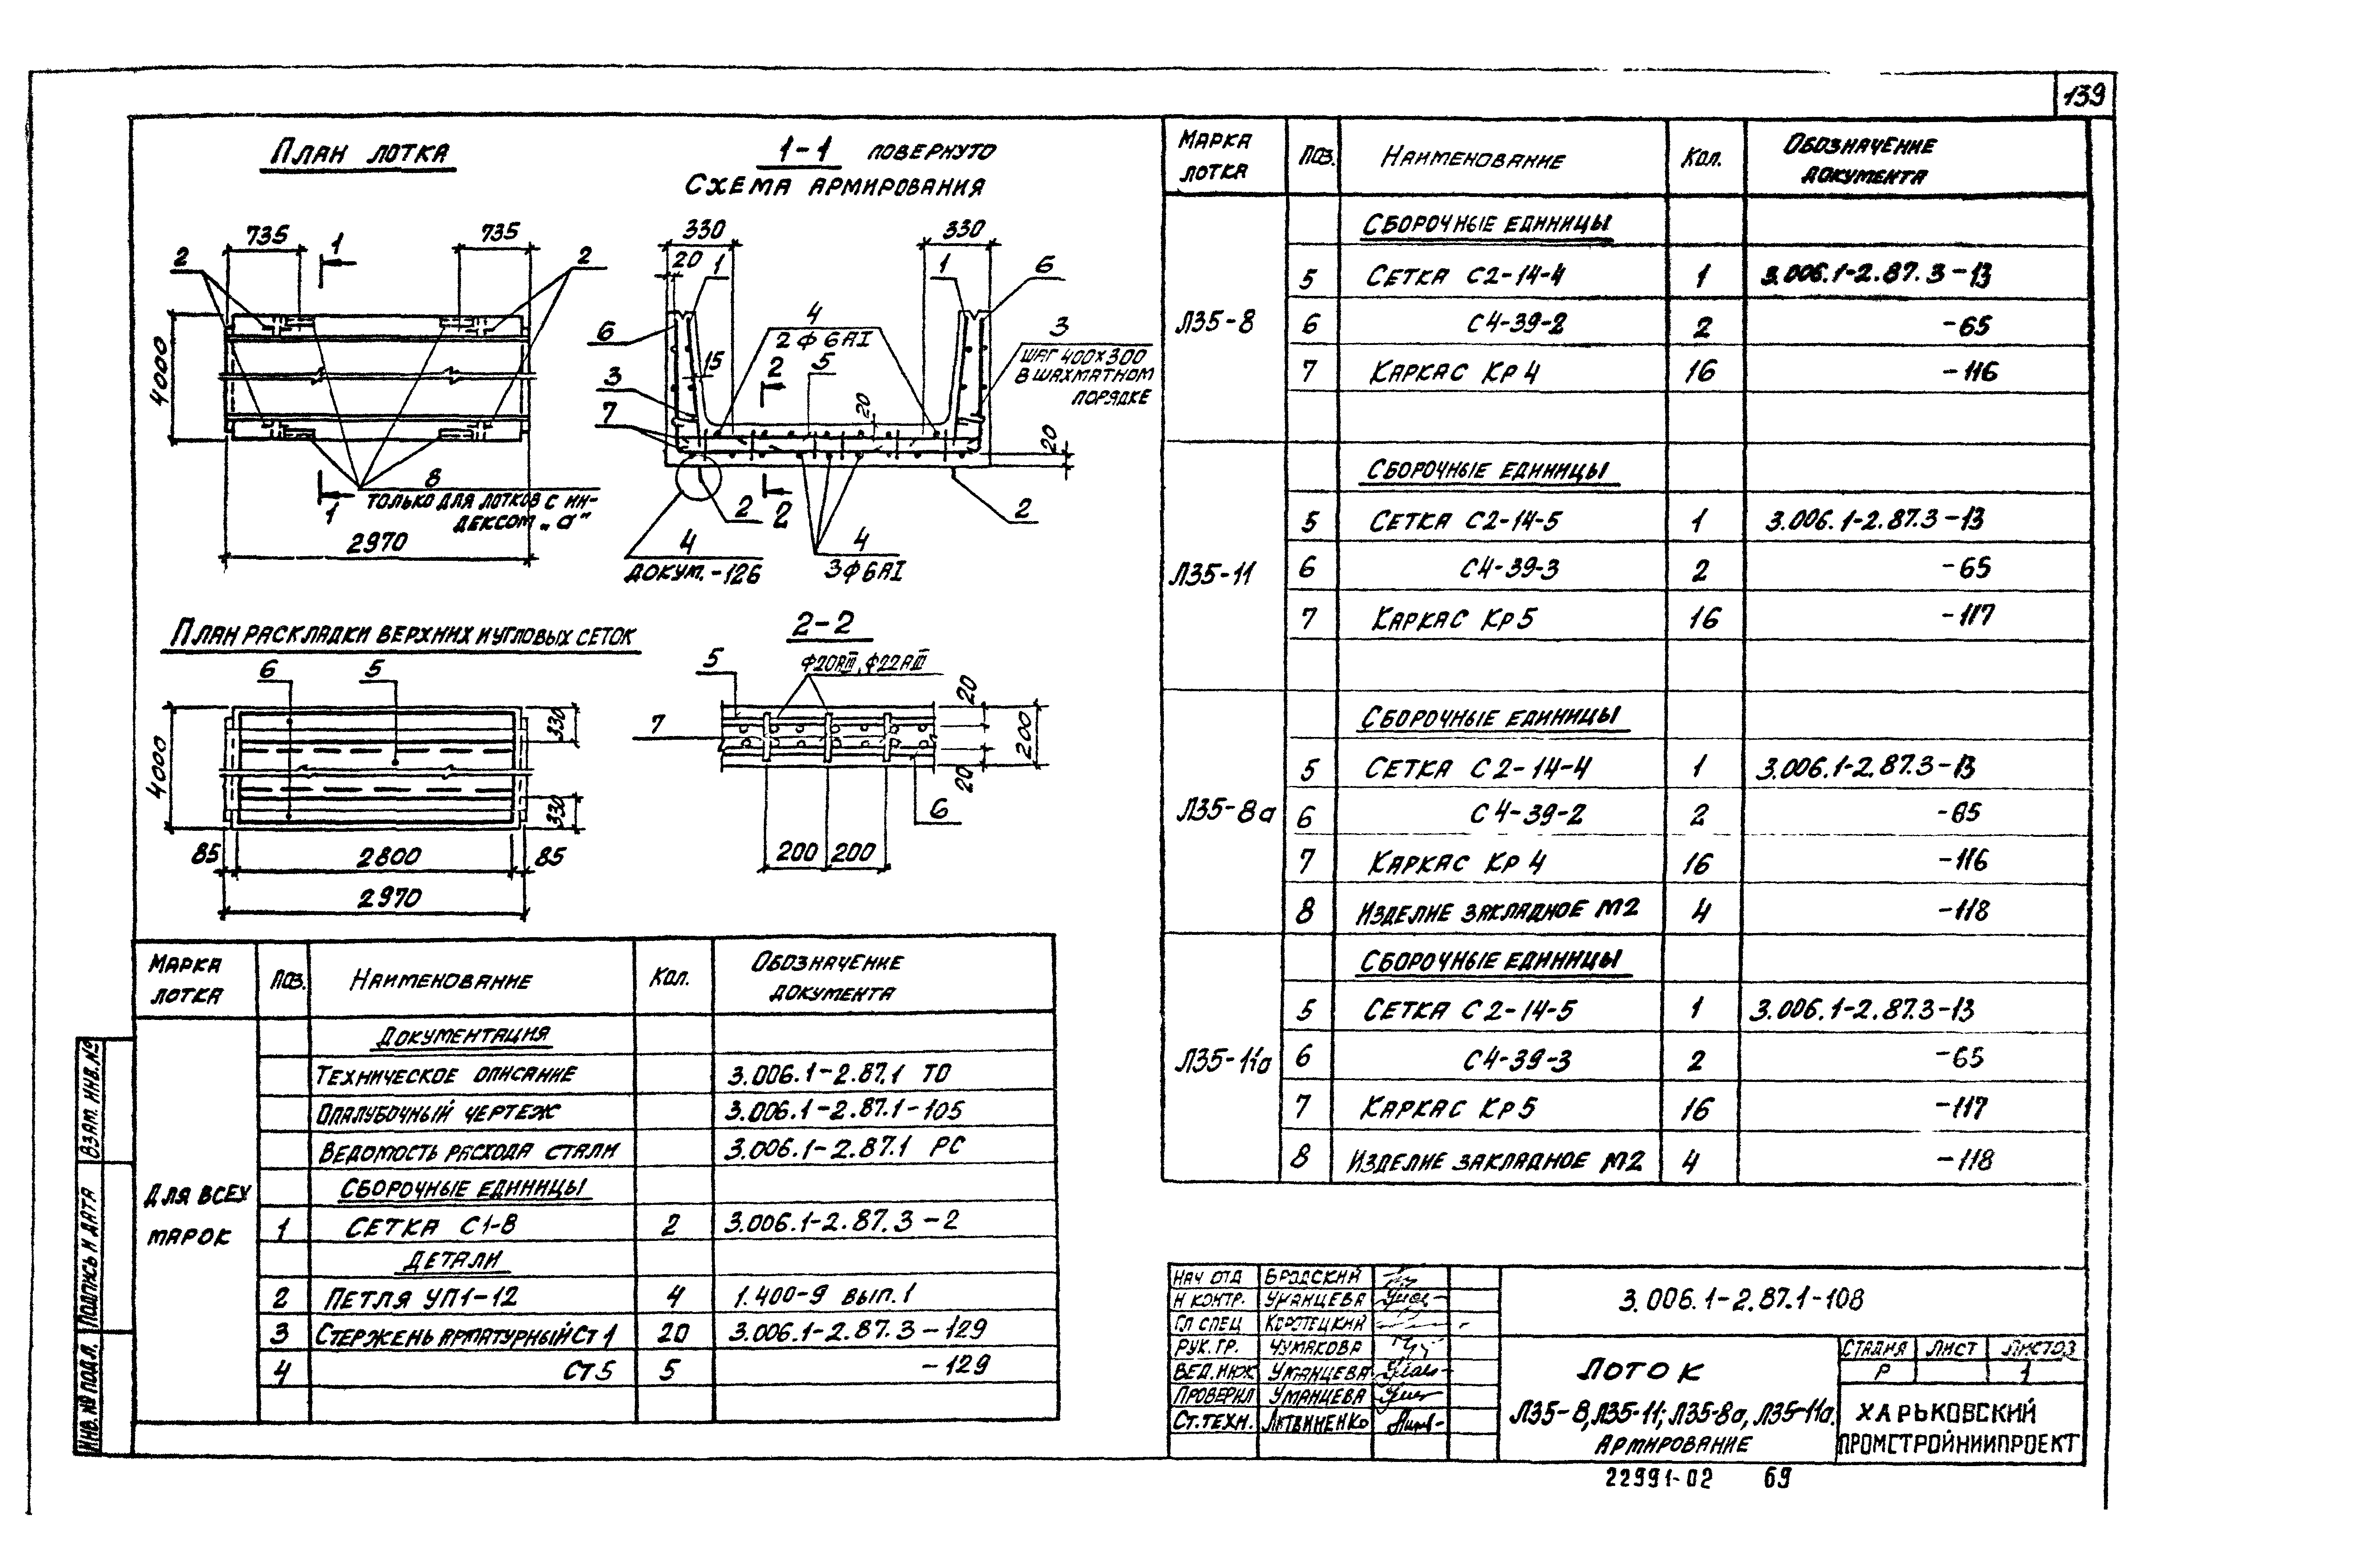 139
План лотка
735
735
1
2
2
4000
8
только для лотков с ин-
дексом „а"
1
2970
1-1 повернуто
Схема армирования
330
330
20
1
1
6
6
4
2ф6АI
3
шаг 400х300
в шахматном
порядке
15
2
5
3
7
20
20
2
2
2
4
докум.-126
4
3ф6АI
План раскладки верхних и угловых сеток
6
5
4000
330
330
85
2800
85
2970
2-2
5
ф20АIII, ф22АIII
7
20
200
20
6
200 200
Марка лотка Поз. Наименование Кол. Обозначение документа
Для всех марок
Документация
Техническое описание 3.006.1-2.87.1 ТО
Опалубочный чертеж 3.006.1-2.87.1-105
Ведомость расхода стали 3.006.1-2.87.1 РС
Сборочные единицы
1 Сетка С1-8 2 3.006.1-2.87.3-2
Детали
2 Петля УП1-12 4 1.400-9 вып.1
3 Стержень арматурный Ст1 20 3.006.1-2.87.3-129
4 Ст5 5 -129
Марка лотка Поз. Наименование Кол. Обозначение документа
Л35-8
Сборочные единицы
5 Сетка С2-14-4 1 3.006.1-2.87.3-13
6 С4-39-2 2 -65
7 Каркас Кр4 16 -116
Л35-11
Сборочные единицы
5 Сетка С2-14-5 1 3.006.1-2.87.3-13
6 С4-39-3 2 -65
7 Каркас Кр5 16 -117
Л35-8а
Сборочные единицы
5 Сетка С2-14-4 1 3.006.1-2.87.3-13
6 С4-39-2 2 -65
7 Каркас Кр4 16 -116
8 Изделие закладное М2 4 -118
Л35-11а
Сборочные единицы
5 Сетка С2-14-5 1 3.006.1-2.87.3-13
6 С4-39-3 2 -65
7 Каркас Кр5 16 -117
8 Изделие закладное М2 4 -118
Взам. инв.№
Подпись и дата
Инв. № подл.
Нач отд Бродский
Н контр. Уманцева
Гл спец Коротецкий
Рук. гр. Чумакова
Вед. инж Уманцева
Проверил Уманцева
Ст. техн. Литвиненко
3.006.1-2.87.1-108
Лоток
Л35-8, Л35-11; Л35-8а, Л35-11а.
Армирование
Стадия Лист Листов
Р 1
Харьковский
Промстройниипроект
22991-02 69